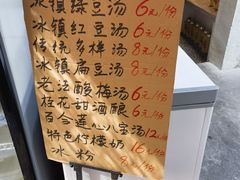 冰镇绿豆汤 6元/份
冰镇红豆汤 6元/份
传统多样汤 8元/份
冰镇扁豆汤 8元/份
老法酸梅汤 6元/份
桂花甜酒酿 6元/份
百合莲心八宝汤 12元/份
特色柠檬奶 16元/份
冰粉 8元/份